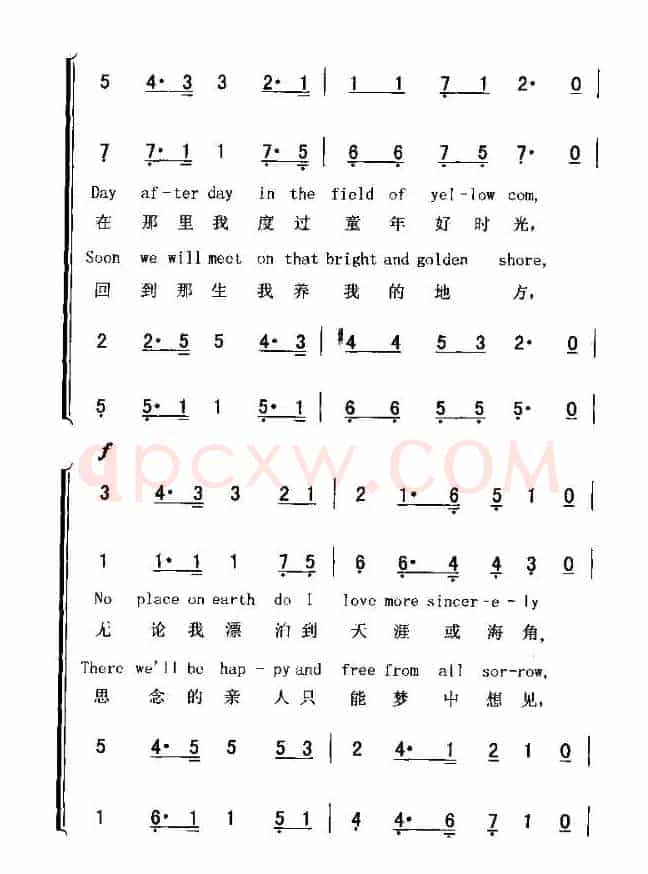 5 4· 3 3 2· 1 | 1 1 7 1 2· 0 |
7 7· 1 1 7· 5 | 6 6 7 5 7· 0 |
Day af-ter day in the field of yel-low com,
在 那 里 我 度 过 童 年 好 时 光,
Soon we will meet on that bright and golden shore,
回 到 那 生 我 养 我 的 地 方,
2 2· 5 5 4· 3 | #4 4 5 3 2· 0 |
5 5· 1 1 5· 1 | 6 6 5 5 5· 0 |
f
qpcxw.COM
3 4· 3 3 2 1 | 2 1· 6 5 1 0 |
1 1· 1 1 7 5 | 6 6· 4 4 3 0 |
No place on earth do I love more sincer-e-ly
无 论 我 漂 泊 到 天 涯 或 海 角,
There we'll be hap-py and free from all sor-row,
思 念 的 亲 人 只 能 梦 中 想 见,
5 4· 5 5 5 3 | 2 4· 1 2 1 0 |
1 6· 1 1 5 1 | 4 4· 6 7 1 0 |